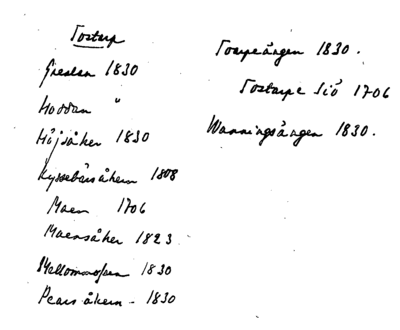 Tostarp
Greslan 1830
Hoddan "
Höjsåker 1830
Kyssebärsåkern 1808
Maen 1706
Maensåker 1823
Mellommosen 1830
Pears åkern - 1830
Toarpeängen 1830.
Tostarpe Siö 1706
Wanningsängen 1830.